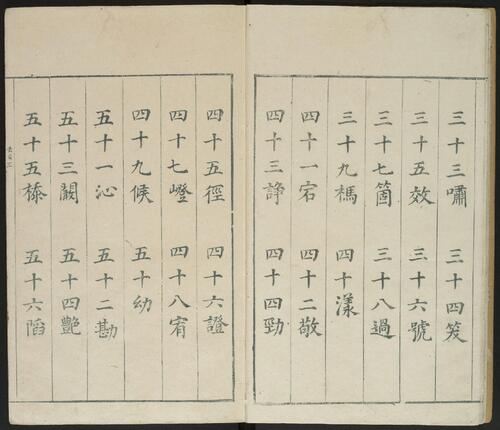 三十三嘯　三十四笑
三十五效　三十六號
三十七箇　三十八過
三十九禡　四十漾
四十一宕　四十二敬
四十三諍　四十四勁
四十五徑　四十六證
四十七嶝　四十八宥
四十九候　五十幼
五十一沁　五十二勘
五十三闞　五十四艷
五十五㮇　五十六陷